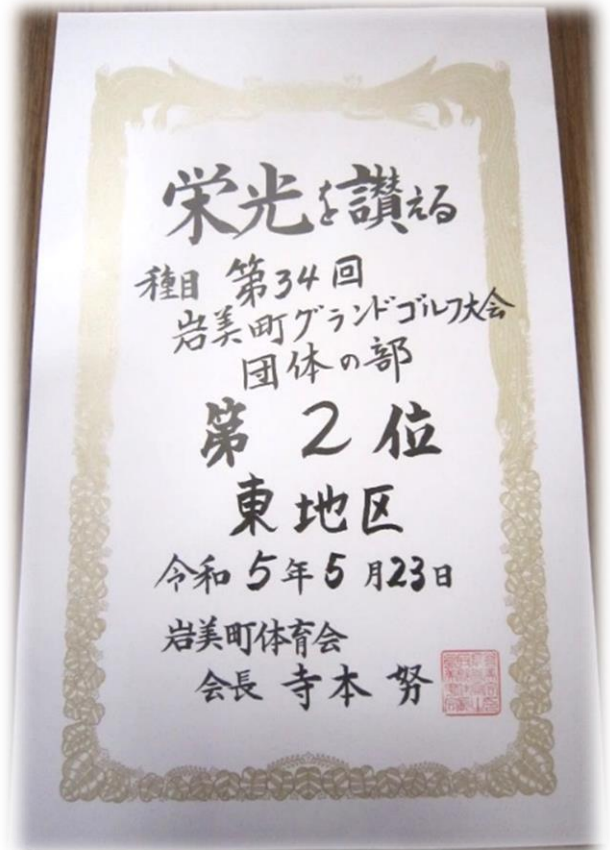 栄光を讃える
種目 第34回
岩美町グランドゴルフ大会
団体の部
第2位
東地区
令和5年5月23日
岩美町体育会
会長 寺本 努